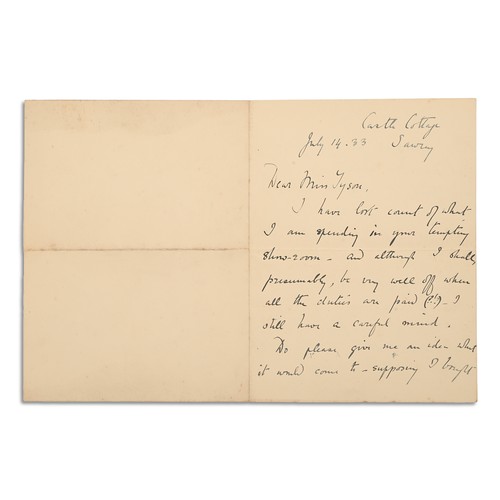 Castle Cottage
July 14. 33 Sawrey
Dear Miss Tyson,
I have lost count of what
I am spending in your tempting
show-room - and although I shall,
presumably, be very well off when
all the duties are paid (?!) - I
still have a careful mind.
Do please give me an idea what
it would come to - supposing I bought